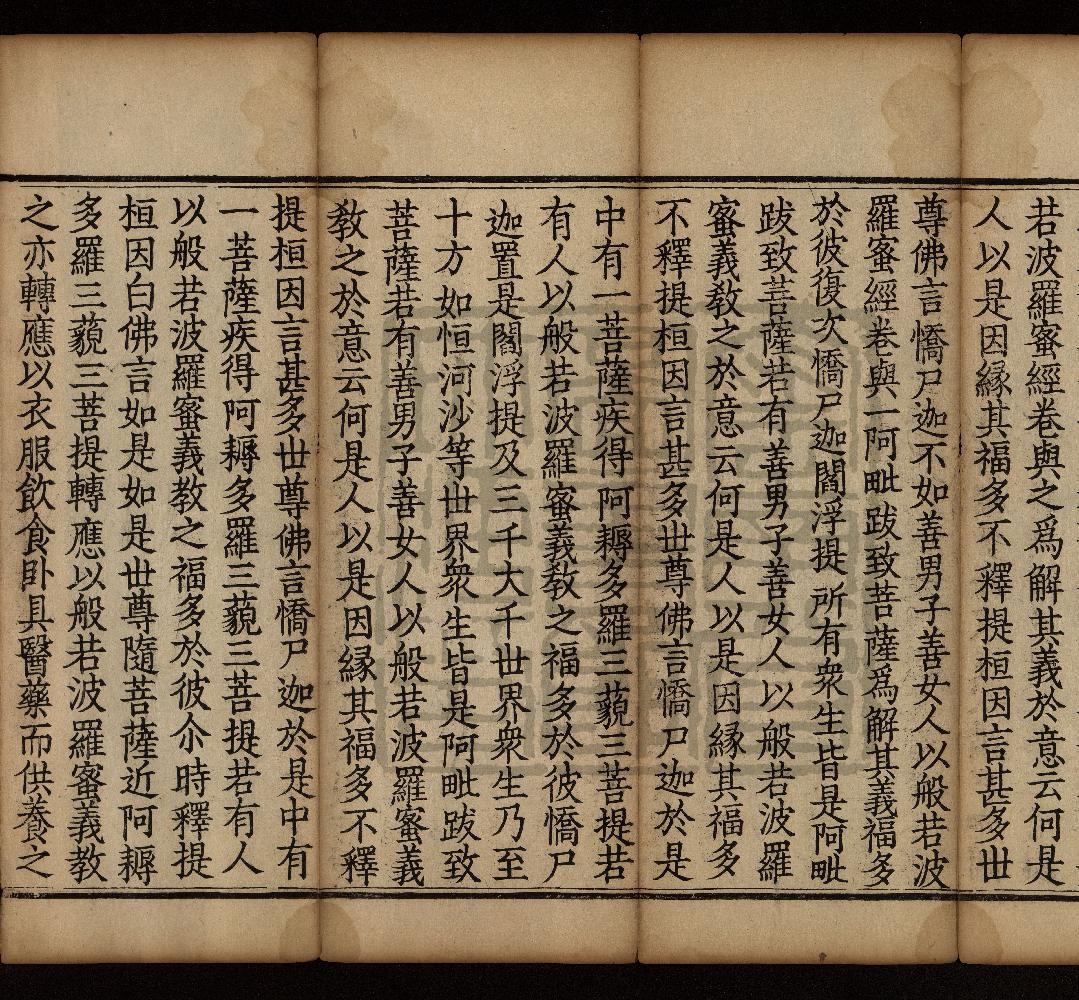 若波羅蜜經卷與之爲解其義於意云何是
人以是因緣其福多不釋提桓因言甚多世
尊佛言憍尸迦不如善男子善女人以般若波
羅蜜經卷與一阿毗跋致菩薩爲解其義福多
於彼復次憍尸迦閻浮提所有衆生皆是阿毗
跋致菩薩若有善男子善女人以般若波羅
蜜義教之於意云何是人以是因緣其福多
不釋提桓因言甚多世尊佛言憍尸迦於是
中有一菩薩疾得阿耨多羅三藐三菩提若
有人以般若波羅蜜義教之福多於彼憍尸
迦置是閻浮提及三千大千世界衆生乃至
十方如恒河沙等世界衆生皆是阿毗跋致
菩薩若有善男子善女人以般若波羅蜜義
教之於意云何是人以是因緣其福多不釋
提桓因言甚多世尊佛言憍尸迦於是中有
一菩薩疾得阿耨多羅三藐三菩提若有人
以般若波羅蜜義教之福多於彼尒時釋提
桓因白佛言如是如是世尊隨菩薩近阿耨
多羅三藐三菩提轉應以般若波羅蜜義教
之亦轉應以衣服飲食卧具醫藥而供養之